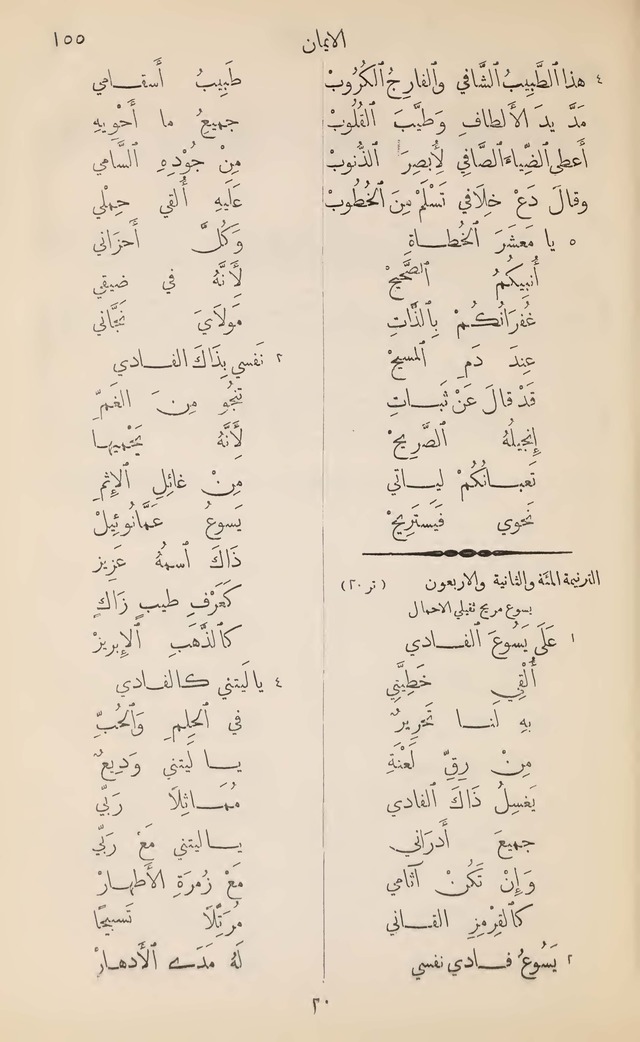 الايمان
١٥٥
٤ هذا ٱلطَّبِيبُ ٱلشَّافي وٱلفارِجُ ٱلكُرُوبْ
مَدَّ يدَ ٱلأَلطافِ وَطيَّبَ ٱلقُلُوبْ
أَعطى ٱلضِّياءَ ٱلصَّافي لِأُبصِرَ ٱلذُّنوبْ
وقالَ دَعْ خِلَافي تَسْلَمْ مِنَ ٱلخُطُوبْ
٥ يا مَعْشَرَ ٱلخُطاةِ
أُنبِيكُمُ ٱلصَّحِيحْ
غُفرَانُكُمْ بِٱلذَّاتِ
عِندَ دَمِ ٱلمسيحْ
قَدْ قالَ عَنْ ثَباتِ
إِنجيلُهُ ٱلصَّرِيحْ
تَعبانُكُمْ لِياتي
نَحوي فَيَستَرِيحْ
الترنيمة المئة والثانية والاربعون (تر ٢٠)
يسوع مريح ثقيلي الاحمال
١ عَلَى يَسُوعَ ٱلفادي
أُلقِي خَطِيَّتي
بِهِ لَنا تَحْرِيرٌ
مِنْ رِقِّ لَعْنَةِ
يَغسِلُ ذَاكَ ٱلفادي
جميعَ أَدرَاني
وَإِنْ تَكُنْ آثامي
كٱلقِرْمِزِ ٱلقاني
٢ يَسُوعُ فادي نفسي
طَبِيبُ أَسقامي
جميعُ ما أَحْوِيهِ
مِنْ جُوْدِهِ ٱلسَّامي
عَلَيهِ أُلقي حِملي
وَكُلَّ أَحزاني
لأَنَّهُ في ضيقي
مَولَايَ نَجَّاني
٣ نَفسي بِذَاكَ ٱلفادي
تنجُو مِنَ ٱلغَمِّ
لأَنَّهُ يَحْمِيها
مِنْ غائِلِ ٱلإِثمِ
يَسوعُ عَمَّانُوئِيلْ
ذَاكَ ٱسمُهُ عَزِيز
كَعَرْفِ طيبٍ زَاكٍ
كٱلذَّهَبِ ٱلإِبريزْ
٤ يا لَيتَني كٱلفادي
في ٱلحِلمِ وَٱلحُبِّ
يا ليتَني وَدِيعٌ
مُمَاثِلًا رَبِّي
يا ليتني مَعْ رَبِّي
مَعْ زُمرَةِ ٱلأَطهارْ
مُرَتِّلًا تَسبيحًا
لَهُ مَدَى ٱلأَدهارْ
٢٠